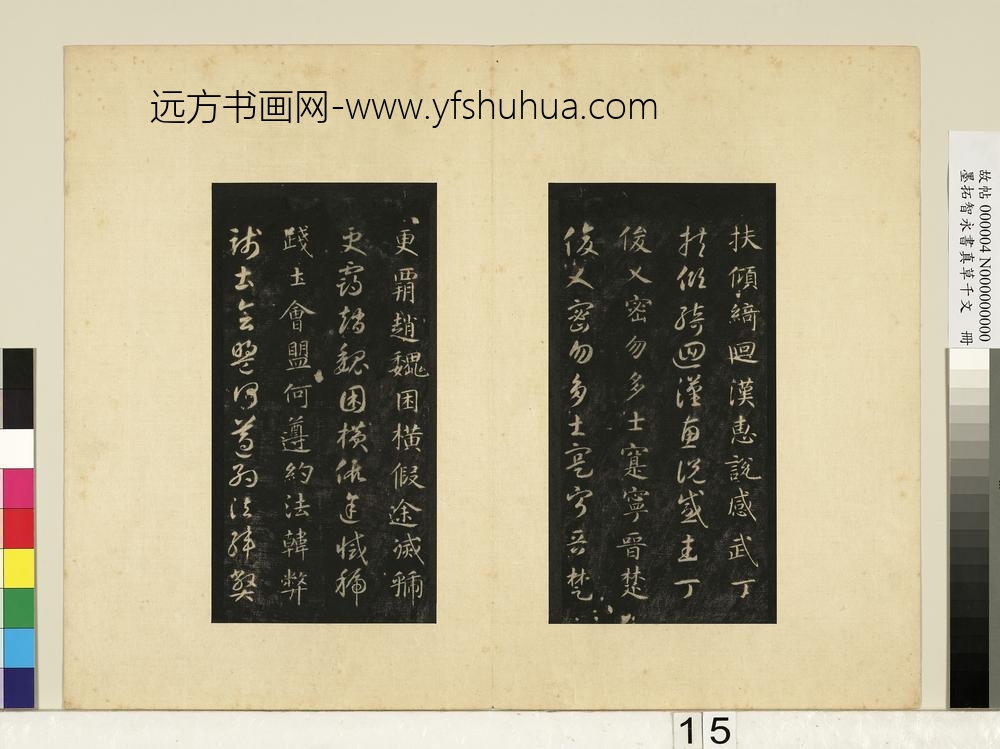 远方书画网-www.yfshuhua.com
扶傾綺迴漢惠說感武丁
扶傾綺迴漢惠說感武丁
俊乂密勿多士寔寧晉楚
俊乂密勿多士寔寧晉楚
更霸趙魏困橫假途滅虢
更霸趙魏困橫假途滅虢
踐土會盟何遵約法韓弊
踐土會盟何遵約法韓弊
故帖 000004 N000000000
墨拓智永書真草千文 冊
15